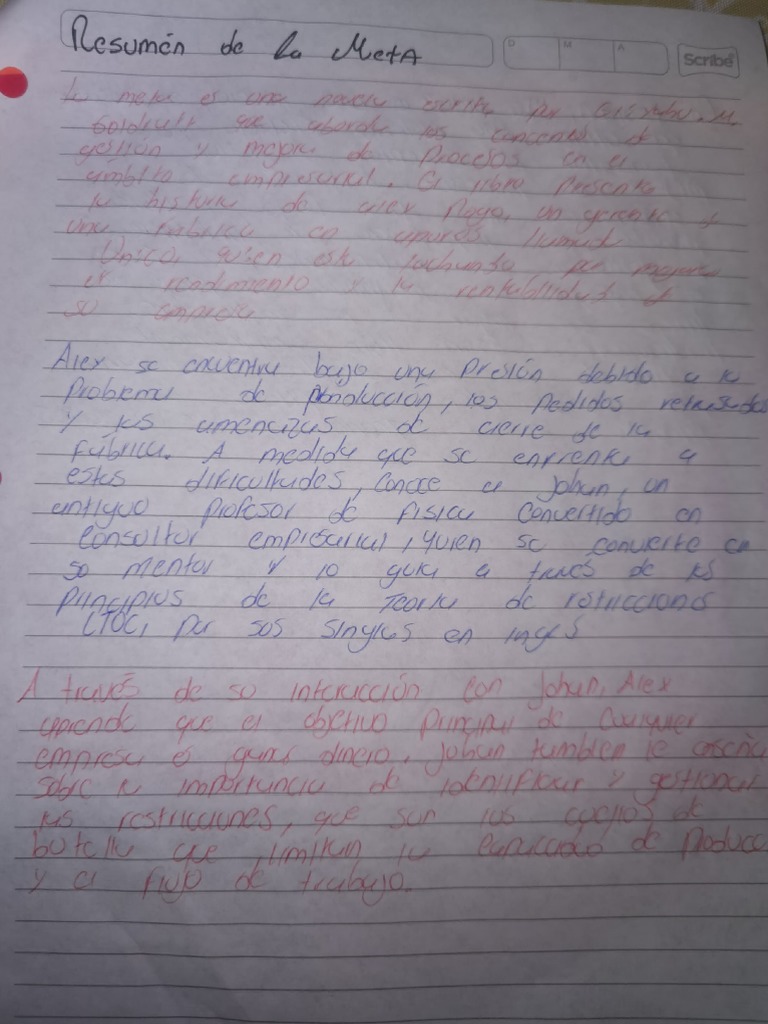 Resumén de la Meta
D M A
Scribe
La meta es una novela escrita por M.
Goldratt que aborda los de
gestión y mejora de procesos en el
ámbito empresarial. El libro presenta
la historia de alex Rogo, un gerente d
una fabrica en apuros llamada
Unico, quien esta por mejorar
el rendimiento y la rentabilidad d
su empresa
Alex se encuentra bajo una Presión debido a la
Problema de Producción, los Pedidos retrasados
y las amenazas de cierre de la
Fábrica. A medida que se enfrenta a
estas dificultades, conoce a Johan, un
antiguo profesor de Fisica convertido en
Consultor empresarial, quien se convierte en
so mentor y lo guia a través de los
principios de la Teoria de restricciones
(TOC, por sus singlas en ingés
A través de su interacción con Johan, Alex
aprende que el objetivo Principal de Cualquier
empresa es ganar dinero. Johan tambien le enseña
sobre la importancia de identificar y gestionar
las restricciones, que son los cuellos de
botella que limitan la capacidad de Producc
y el flujo de trabajo.